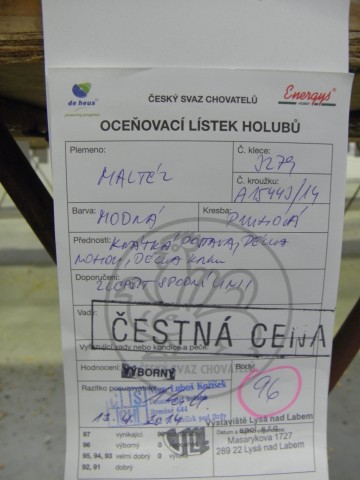 de heus
powering progress
ČESKÝ SVAZ CHOVATELŮ
Energys
OCEŇOVACÍ LÍSTEK HOLUBŮ
Plemeno:
MALTÉZ
Č. klece:
3279
Č. kroužku:
A15443/14
Barva:
MODRÁ
Kresba:
PRUHOVÁ
Přednosti: KRÁTKÁ POSTAVA, DÉLKA
NOHOU, DÉLKA KRKU
Doporučení:
ZLEPŠIT SPODNÍ LINII
Vady:
ČESTNÁ CENA
Vylučující vady nebo kondice a péče:
SVAZ CHOVATELŮ
Hodnocení:
VÝBORNÝ
Body:
96
Razítko posuzovatele:
Luboš
644
2014
Výstaviště Lysá nad Labem
spol. s r.o.
Masarykova 1727
289 22 Lysá nad Labem
Datum a
97 vynikající
96 výborný 0
95, 94, 93 velmi dobrý 0
92, 91 dobrý